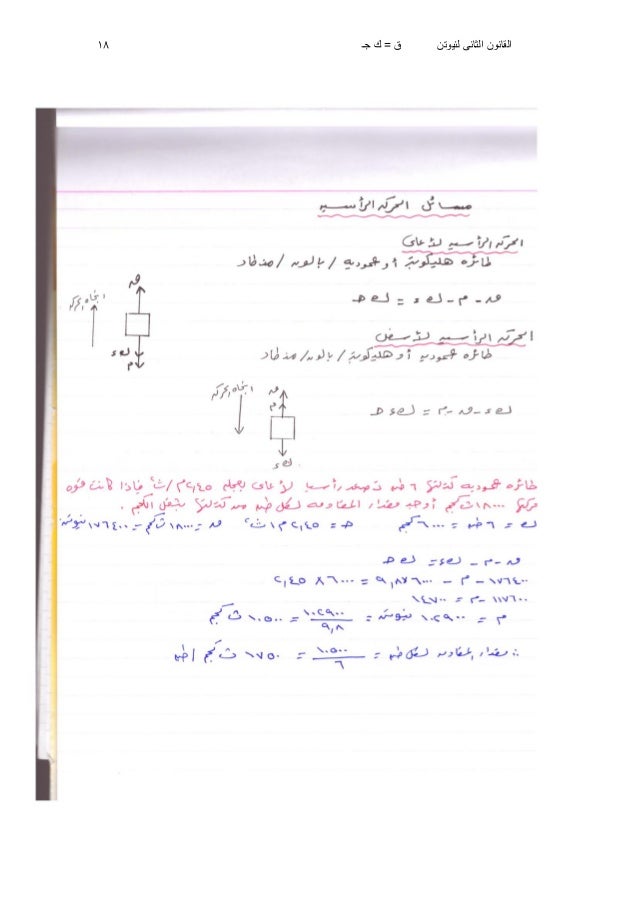 القانون الثانى لنيوتن ق = ك جـ ١٨
مسائل الحركة الرأسيه
الحركة الرأسيه لأعلى
طائره هليكوبتر أو عموديه / بالون / منطاد
ور - م - لء = لء ح
ور
اتجاه الحركه
لء
م
الحركة الرأسيه لأسفل
طائره عموديه أو هليكوبتر / بالون / منطاد
لء - ور - م = لء ح
ور
م
اتجاه الحركه
لء
طائره عموديه كتلتها ٦ طن تصعد رأسيا لأعلى بعجله ٢,٤٥ م/ث٢ فإذا كانت قوه
محركها ١٨٠٠٠ ث كجم أوجد مقدار المقاومه لكل طن من كتلتها بثقل الكجم .
ل = ٦ طن = ٦٠٠٠ كجم ح = ٢,٤٥ م/ث٢ ور = ١٨٠٠٠ ث كجم = ١٧٦٤٠٠ نيوتن
ور - م - لء = ل ح
١٧٦٤٠٠ - م - ٦٠٠٠ × ٩,٨ = ٦٠٠٠ × ٢,٤٥
١١٧٦٠٠ - م = ١٤٧٠٠
م = ١٠٢٩٠٠ نيوتن = ١٠٢٩٠٠ / ٩,٨ = ١٠٥٠٠ ث كجم
∴ مقدار المقاومه لكل طن = ١٠٥٠٠ / ٦ = ١٧٥٠ ث كجم / طن